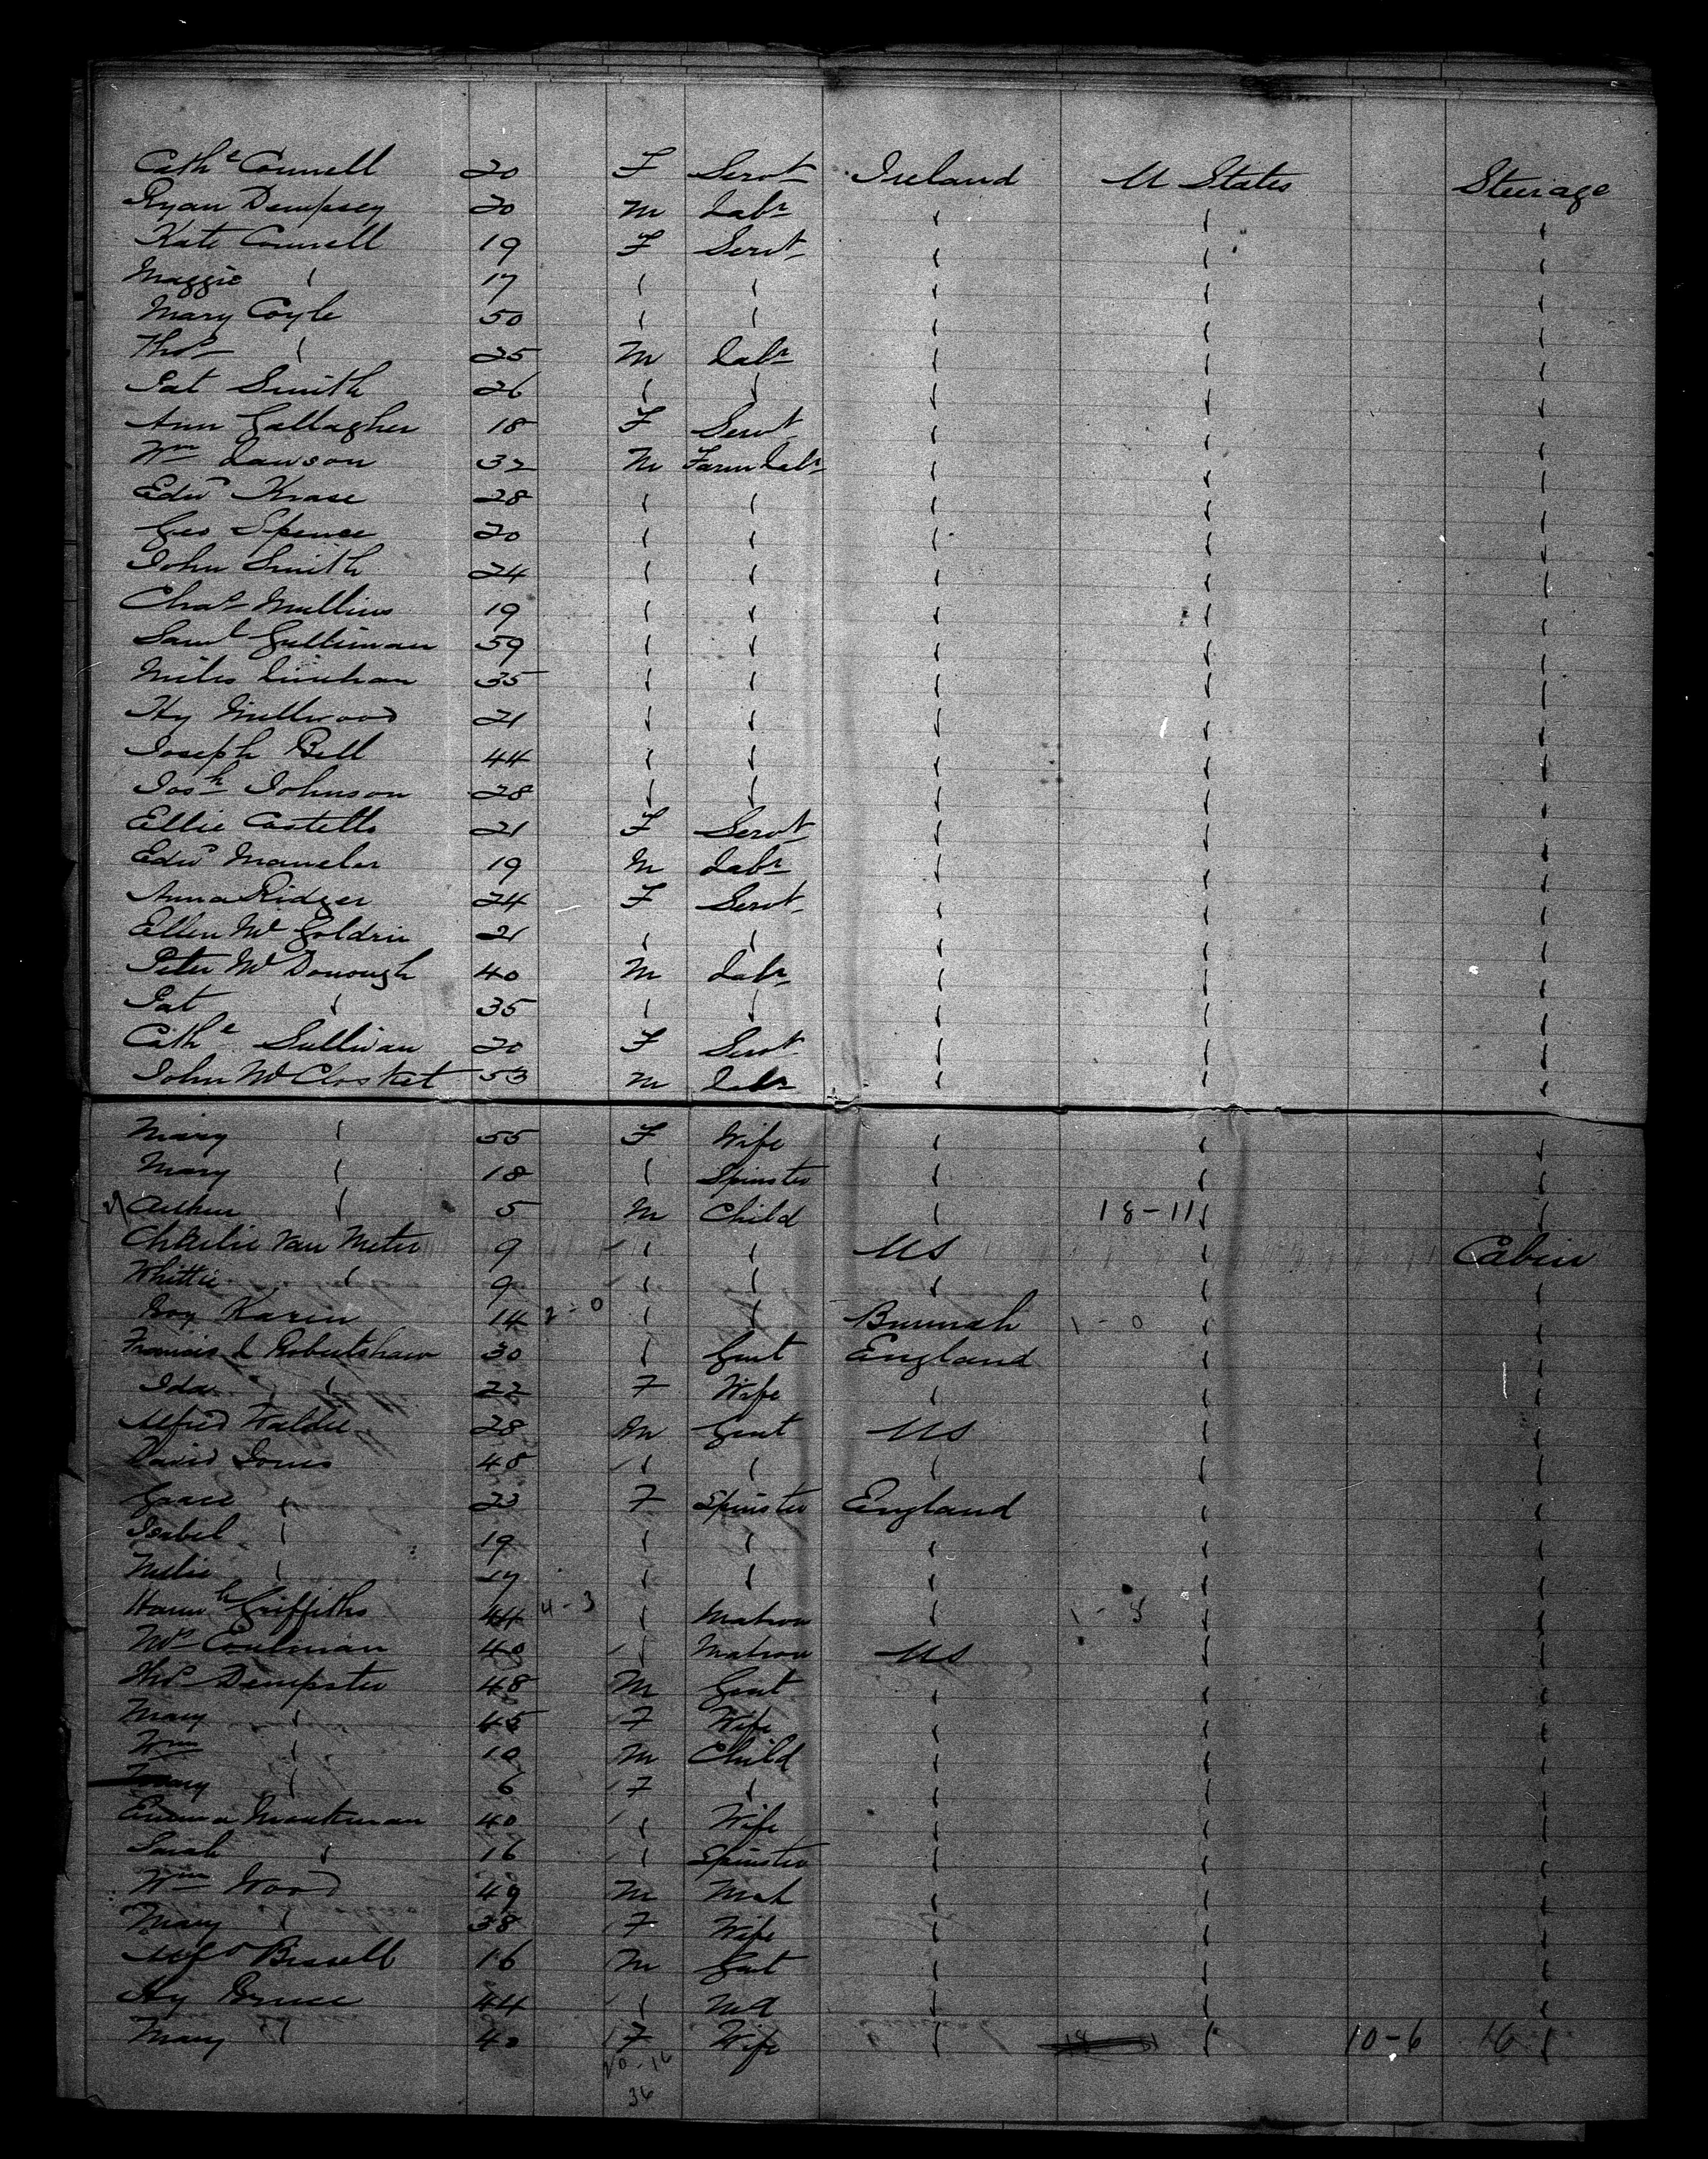 Cathe Connell 20 F Servt Ireland U States Steerage
Ryan Dempsey 20 M Labr " " "
Kate Connell 19 F Servt " " "
Maggie " 17 " " " " "
Mary Coyle 50 " " " " "
Thos " 25 M Labr " " "
Pat Smith 26 " " " " "
Ann Gallagher 18 F Servt " " "
Wm Lawson 32 M Farm Labr " " "
Edwd Krase 28 " " " " "
Geo Spence 20 " " " " "
John Smith 24 " " " " "
Chas Mullins 19 " " " " "
Saml Gulliman 59 " " " " "
Miles Linehan 35 " " " " "
Hy Millwood 21 " " " " "
Joseph Bell 44 " " " " "
Josh Johnson 28 " " " " "
Ellie Costello 21 F Servt " " "
Edwd 19 M Labr " " "
Anna Ridger 24 F Servt " " "
Ellen McGoldric 21 " " " " "
Peter McDonough 40 M Labr " " "
Pat " 35 " " " " "
Cathe Sullivan 20 F Servt " " "
John McClosket 53 M Labr " " "
Mary " 55 F Wife " " "
Mary " 18 " Spinster " " "
Arthur " 5 M Child " 18-11 " "
Charlie Van Meter 9 " " US " Cabin
Whittie " 9 " " " " "
Karin 14 2-0 " " Burmah 1-0 " "
Francis L Robertshaw 30 " Gent England " "
Ida " 22 F Wife " " "
Alfred Waldie 28 M Gent US " "
David Jones 48 " " " " "
Grace " 23 F Spinster England " "
Isabel " 19 " " " " "
Nellie " 17 " " " " "
Hannh Griffiths 44 4-3 " Matron " 1-3 " "
Mrs Coulman 40 " Matron US " "
Thos Dempster 48 M Gent " " "
Mary " 45 F Wife " " "
Wm " 10 M Child " " "
Mary " 6 F " " " "
Emma 40 " Wife " " "
Sarah " 16 " Spinster " " "
Wm Wood 49 M " " "
Mary " 38 F Wife " " "
Alfd Bissell 16 M Gent " " "
Hy Bruce 44 " " " "
Mary " 40 F Wife " " 10-6 16 "
20-16
36